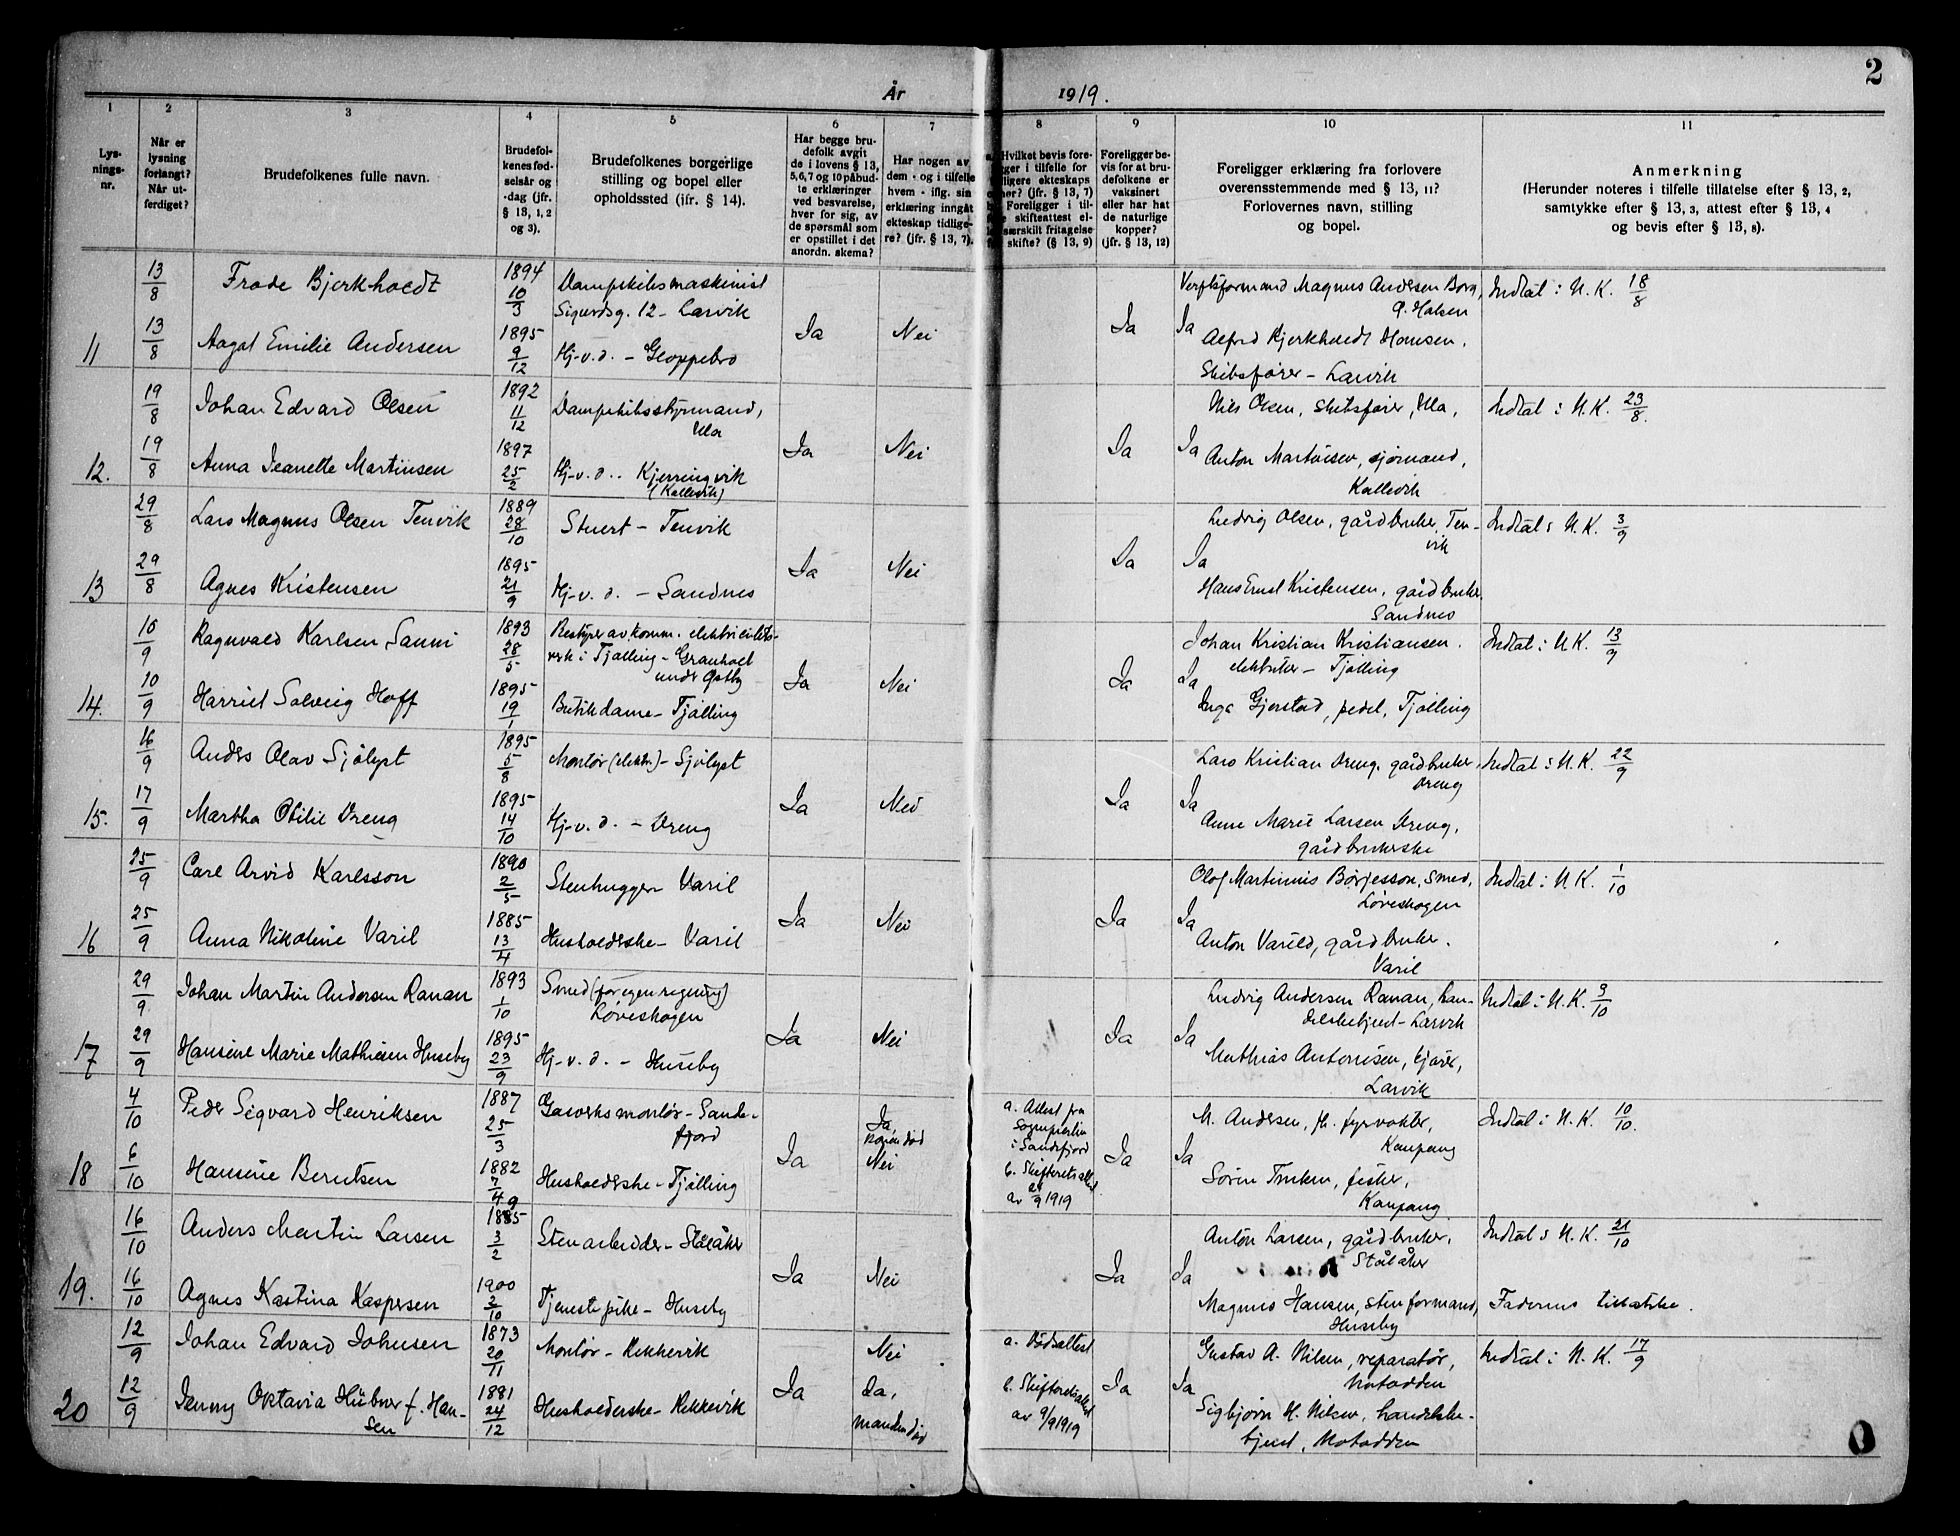 2
År 1919.
1 2 3 4 5 6 7 8 9 10 11
Lys-
nings-
nr.
Når er
lysning
forlangt?
Når ut-
ferdiget?
Brudefolkenes fulle navn.
Brudefol-
kenes fød-
selsår og
-dag (jfr.
§ 13, 1, 2
og 3).
Brudefolkenes borgerlige
stilling og bopel eller
opholdssted (jfr. § 14).
Har begge bru-
defolk avgit
de i lovens § 13,
5, 6, 7 og 10 påbud-
te erklæringer
ved besvarelse,
hver for sig, av
de spørsmål som
er opstillet i det
anordn. skema?
Har nogen av
dem - og i tilfelle
hvem - iflg. sin
erklæring inngåt
ekteskap tidlige-
re? (jfr. § 13, 7).
Hvilket bevis fore-
ger i tilfelle for
ligere ekteskaps
her? (jfr. § 13, 7)
Foreligger i til-
skifteattest el-
særskilt fritagelse
skifte? (§ 13, 9)
Foreligger be-
vis for at bru-
defolkene er
vaksinert
eller har hat
de naturlige
kopper?
(jfr. § 13, 12)
Foreligger erklæring fra forlovere
overensstemmende med § 13, 11?
Forlovernes navn, stilling
og bopel.
Anmerkning
(Herunder noteres i tilfelle tillatelse efter § 13, 2,
samtykke efter § 13, 3, attest efter § 13, 4
og bevis efter § 13, 8).
13/8 Frode Bjerkholdt 1894 10/3 Dampskibsmaskinist
Sigurdsg. 12 - Larvik
Verftsformand Magnus Andersen Borg,
Ø. Halsen
Indtat i N. K. 18/8
11 13/8 Aagot Emilie Andersen 1895 9/12 Hj-v.d. - Gloppebro Ja Nei Ja Ja
Alfred Bjerkholdt Hansen,
Skibsfører - Larvik
19/8 Johan Edvard Olsen 1892 11/12 Dampskibsstyrmand,
Ula
Nils Olsen, skibsfører, Ula,
Indtat i N. K. 23/8.
12. 19/8 Anna Jeanette Martinsen 1897 25/2 Hj-v.d. - Kjerringvik
(Kallevik)
Ja Nei Ja Ja
Anton Martinsen, sjømand,
Kallevik
29/8 Lars Magnus Olsen Tenvik 1889 28/10 Stuert - Tenvik
Ludvig Olsen, gårdbruker, Ten-
vik
Indtat i N. K. 3/9
13 29/8 Agnes Kristensen 1895 21/9 Hj-v.d. - Sandnes Ja Nei Ja Ja
Hans Ernst Kristensen, gårdbruker
Sandnes
10/9 Ragnvald Karlsen Sanni 1893 28/5 Bestyrer av komm. elektricitets-
verk i Tjølling - Granholt
under Østby
Johan Kristian Kristiansen.
elektriker - Tjølling
Indtat i N. K. 13/9
14. 10/9 Harriet Solveig Hoff 1895 19/1 Butikdame - Tjølling Ja Nei Ja Ja
Inga Gjerstad, pedel, Tjølling
16/9 Anders Olav Sjølyst 1895 5/8 Montør (elektr.) - Sjølyst
Lars Kristian Vreng, gårdbruker,
Vreng
Indtat i N. K. 22/9
15. 17/9 Martha Otilie Vreng 1895 14/10 Hj-v.d. - Vreng Ja Nei Ja Ja
Anne Marie Larsen Vreng,
gårdbrukerske
25/9 Carl Arvid Karlsson 1890 2/5 Stenhugger Varil
Olof Martinius Børjesson, smed,
Løveskogen
Indtat i N. K. 1/10
16 25/9 Anna Nikoline Varil 1885 13/4 Husholderske - Varil Ja Nei Ja Ja
Anton Varild, gårdbruker.
Varil
29/9 Johan Martin Andersen Ranan 1893 1/10 Smed (for egen regning)
Løveskogen
Ludvig Andersen Ranan, han-
delsbetjent - Larvik
Indtat i N. K. 9/10
17 29/9 Hansine Marie Mathisen Huseby 1895 23/9 Hj-v.d. - Huseby Ja Nei Ja Ja
Mathias Antonisen, kjører,
Larvik
4/10 Peder Sigvard Henriksen 1887 25/3 Gasverksmontør - Sande-
fjord
Ja,
konen død
a. Attest fra
Sognepresten
i Sandefjord
M. Andersen, fh. fyrvokter,
Kaupang
Indtat i N. K. 10/10.
18 6/10 Hansine Berntsen 1882 7/4 Husholderske - Tjølling Ja Nei
b. Skifteretsattest
av 24/9 1919
Ja Ja
Søren Trulsen, fisker,
Kaupang
16/10 Anders Martin Larsen 1885 9 3/2 Stenarbeider - Ståläker
Anton Larsen, gårdbruker.
Stålåker
Indtat i N. K. 21/10
19. 16/10 Agnes Kastina Kaspersen 1900 2/10 Tjenestepike - Huseby Ja Nei Ja Ja
Magnus Hansen, stenformand,
Huseby
Faderens tillatelse.
12/9 Johan Edvard Johnsen 1873 20/11 Montør - Rekkevik Nei
a. Dødsattest
Gustav A. Nilsen, reparatør,
Notodden
Indtat i N. K. 17/9
20 12/9 Jenny Oktavia Hübner f. Han-
sen
1881 24/12 Husholderske - Rekkevik Ja Ja,
manden død
b. Skifteretsattest
av 9/9 1919
Ja Ja
Sigbjørn H. Nilsen, handelsbe-
tjent, Notodden